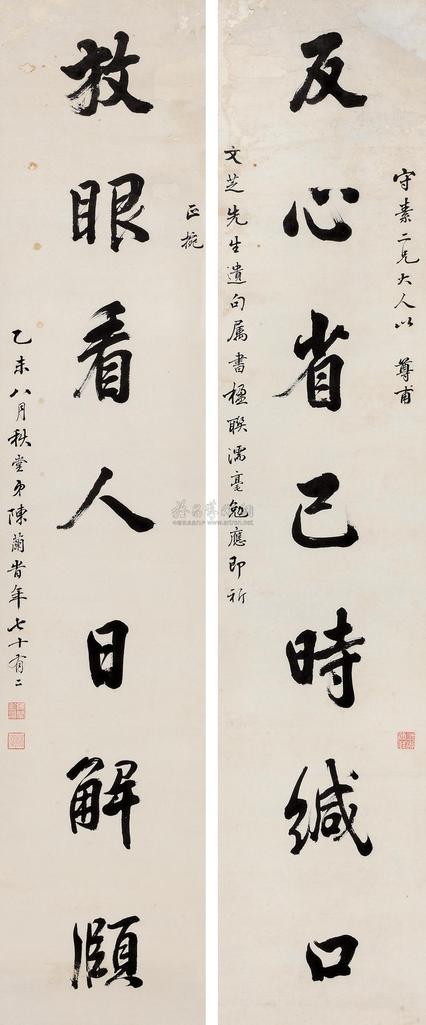 反心省己時緘口
守素二兄大人以 尊甫
文芝先生遺句属書楹聯濡毫勉應即祈
正捥
放眼看人日解頤
乙未八月秋堂弟陳蘭省年七十有二